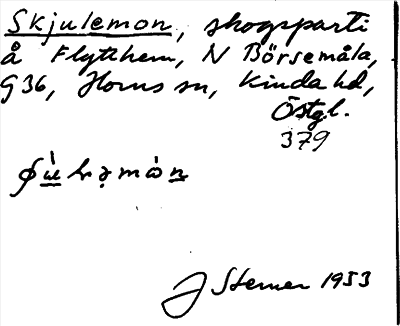 Skjulemon, skogsparti
å Flythem, N Börsemåla,
G36, Horns sn, Kinda hd,
Östgl.
379
J Stemer 1953